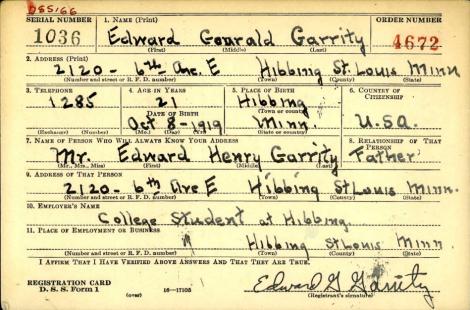 DSS:66
SERIAL NUMBER 1. NAME (Print) ORDER NUMBER
1036 Edward Gerald Garrity 4672
(First) (Middle) (Last)
2. ADDRESS (Print)
2120 - 6th Ave. E Hibbing St. Louis Minn
(Number and street or R. F. D. number) (Town) (County) (State)
3. TELEPHONE 4. AGE IN YEARS 5. PLACE OF BIRTH 6. COUNTRY OF CITIZENSHIP
1285 21 Hibbing
DATE OF BIRTH (Town or county)
Oct 8-1919 Minn. U.S.A.
(Exchange) (Number) (Mo.) (Day) (Yr.) (State or country)
7. NAME OF PERSON WHO WILL ALWAYS KNOW YOUR ADDRESS 8. RELATIONSHIP OF THAT PERSON
Mr. Edward Henry Garrity Father
(Mr., Mrs., Miss) (First) (Middle) (Last)
9. ADDRESS OF THAT PERSON
2120 - 6th Ave E Hibbing St Louis Minn.
(Number and street or R. F. D. number) (Town) (County) (State)
10. EMPLOYER'S NAME
College Student at Hibbing
11. PLACE OF EMPLOYMENT OR BUSINESS
Hibbing St Louis Minn
(Number and street or R. F. D. number) (Town) (County) (State)
I AFFIRM THAT I HAVE VERIFIED ABOVE ANSWERS AND THAT THEY ARE TRUE.
REGISTRATION CARD
D. S. S. Form 1 (over) 16—17105 Edward G Garrity
(Registrant's signature)